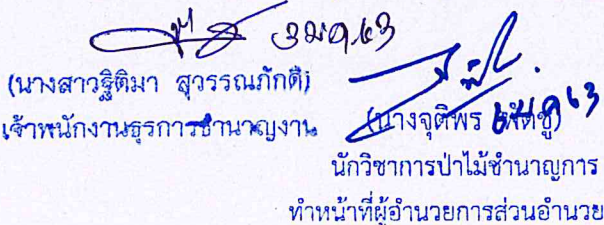 3 มี.ค. 63
(นางสาวฐิติมา สุวรรณภักดี)
เจ้าพนักงานธุรการชำนาญงาน
(นางจุติพร
มี.ค. 63
นักวิชาการป่าไม้ชำนาญการ
ทำหน้าที่ผู้อำนวยการส่วนอำนวย